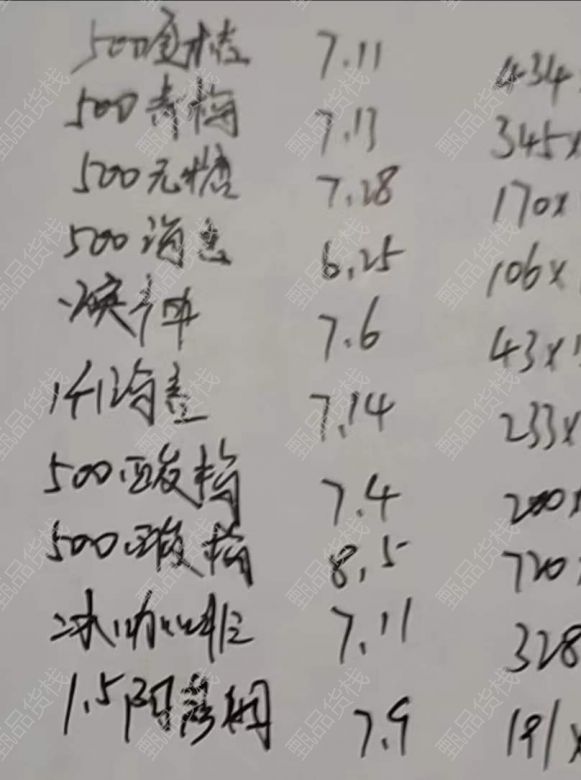 500金桔 7.11 434
500青梅 7.13 345x
500无糖 7.28 170x
500海 6.25 106x
7.6 43x1
7.14 233x
500酸梅 7.4 200x
500酸梅 8.5 720
冰咖啡 7.11 328
1.5 7.9 191x
甄品货栈